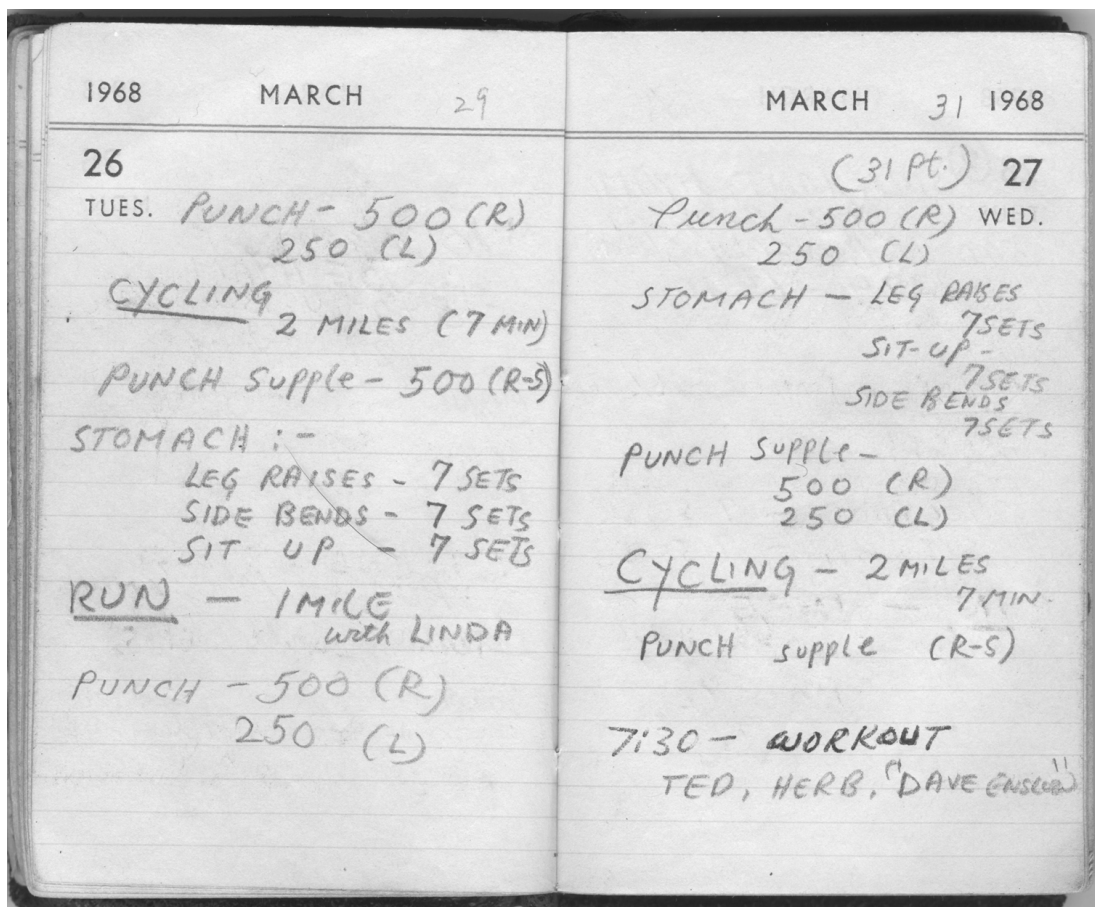 1968 MARCH 29
26
TUES. PUNCH - 500 (R)
250 (L)
CYCLING
2 MILES (7 MIN)
PUNCH Supple - 500 (R-S)
STOMACH :-
LEG RAISES - 7 SETS
SIDE BENDS - 7 SETS
SIT UP - 7 SETS
RUN - 1 MILE
with LINDA
PUNCH - 500 (R)
250 (L)
MARCH 31 1968
(31 Pt.) 27
Punch - 500 (R) WED.
250 (L)
STOMACH - LEG RAISES
7 SETS
SIT-UP -
7 SETS
SIDE BENDS
7 SETS
PUNCH Supple -
500 (R)
250 (L)
CYCLING - 2 MILES
7 MIN.
PUNCH supple (R-S)
7:30 - WORKOUT
TED, HERB, "DAVE